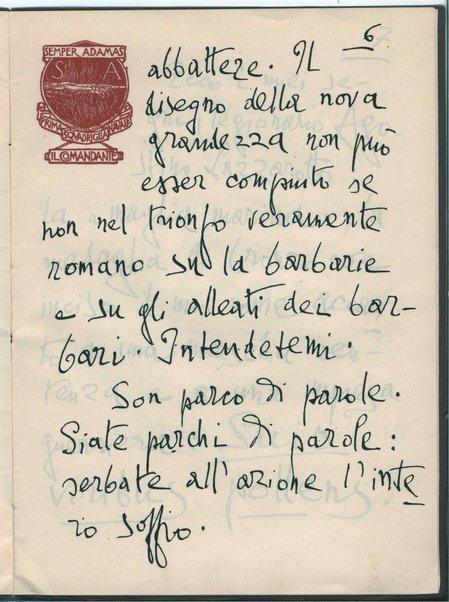 6
SEMPER ADAMAS
S A
PRIMA SQVADRIGLIA NAVALE
IL COMANDANTE
abbattere. Il
disegno della nova
grandezza non può
esser compiuto se
non nel trionfo veramente
romano su la barbarie
e su gli alleati dei bar-
bari. Intendetemi.
Son parco di parole.
Siate parchi di parole:
serbate all'azione l'inte
ro soffio.